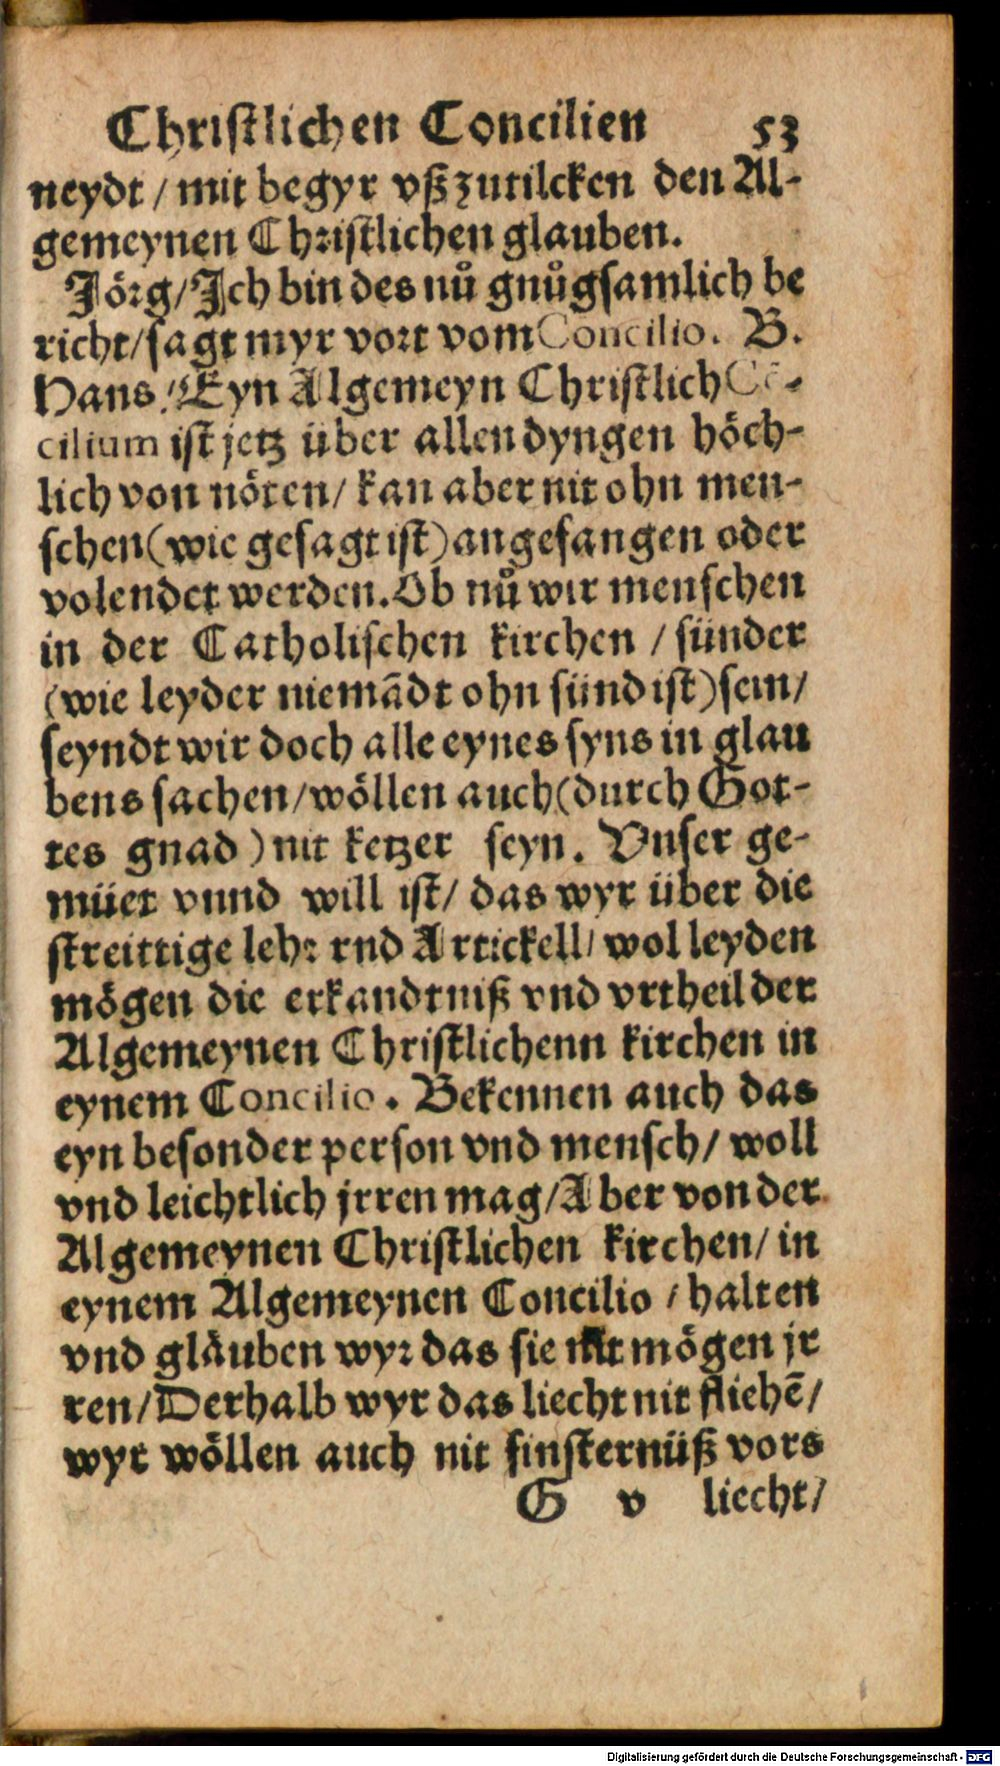 Christlichen Concilien 53
neydt / mit begyr vßzutilcken den Al-
gemeynen Christlichen glauben.
Jörg/Jch bin des nů gnůgsamlich be
richt/sagt myr vort vom Concilio. B.
Hans/Eyn Algemeyn Christlich Cō-
cilium ist jetz über allen dyngen höch-
lich von nöten/ kan aber nit ohn men-
schen(wie gesagt ist)angefangen oder
volendet werden. Ob nů wir menschen
in der Catholischen kirchen / sünder
(wie leyder niemādt ohn sünd ist)sein/
seyndt wir doch alle eynes syns in glau
bens sachen/wöllen auch(durch Got-
tes gnad)nit ketzer seyn. Vnser ge-
müet vnnd will ist/ das wyr über die
streittige lehr vnd Artickell/ wol leyden
mögen die erkandtniß vnd vrtheil der
Algemeynen Christlichenn kirchen in
eynem Concilio. Bekennen auch das
eyn besonder person vnd mensch/ woll
vnd leichtlich jrren mag/Aber von der
Algemeynen Christlichen kirchen/ in
eynem Algemeynen Concilio / halten
vnd gläuben wyr das sie nit mögen jr
ren/Derhalb wyr das liecht nit fliehē/
wyr wöllen auch nit finsternüß vors
G v liecht/
Digitalisierung gefördert durch die Deutsche Forschungsgemeinschaft - DFG